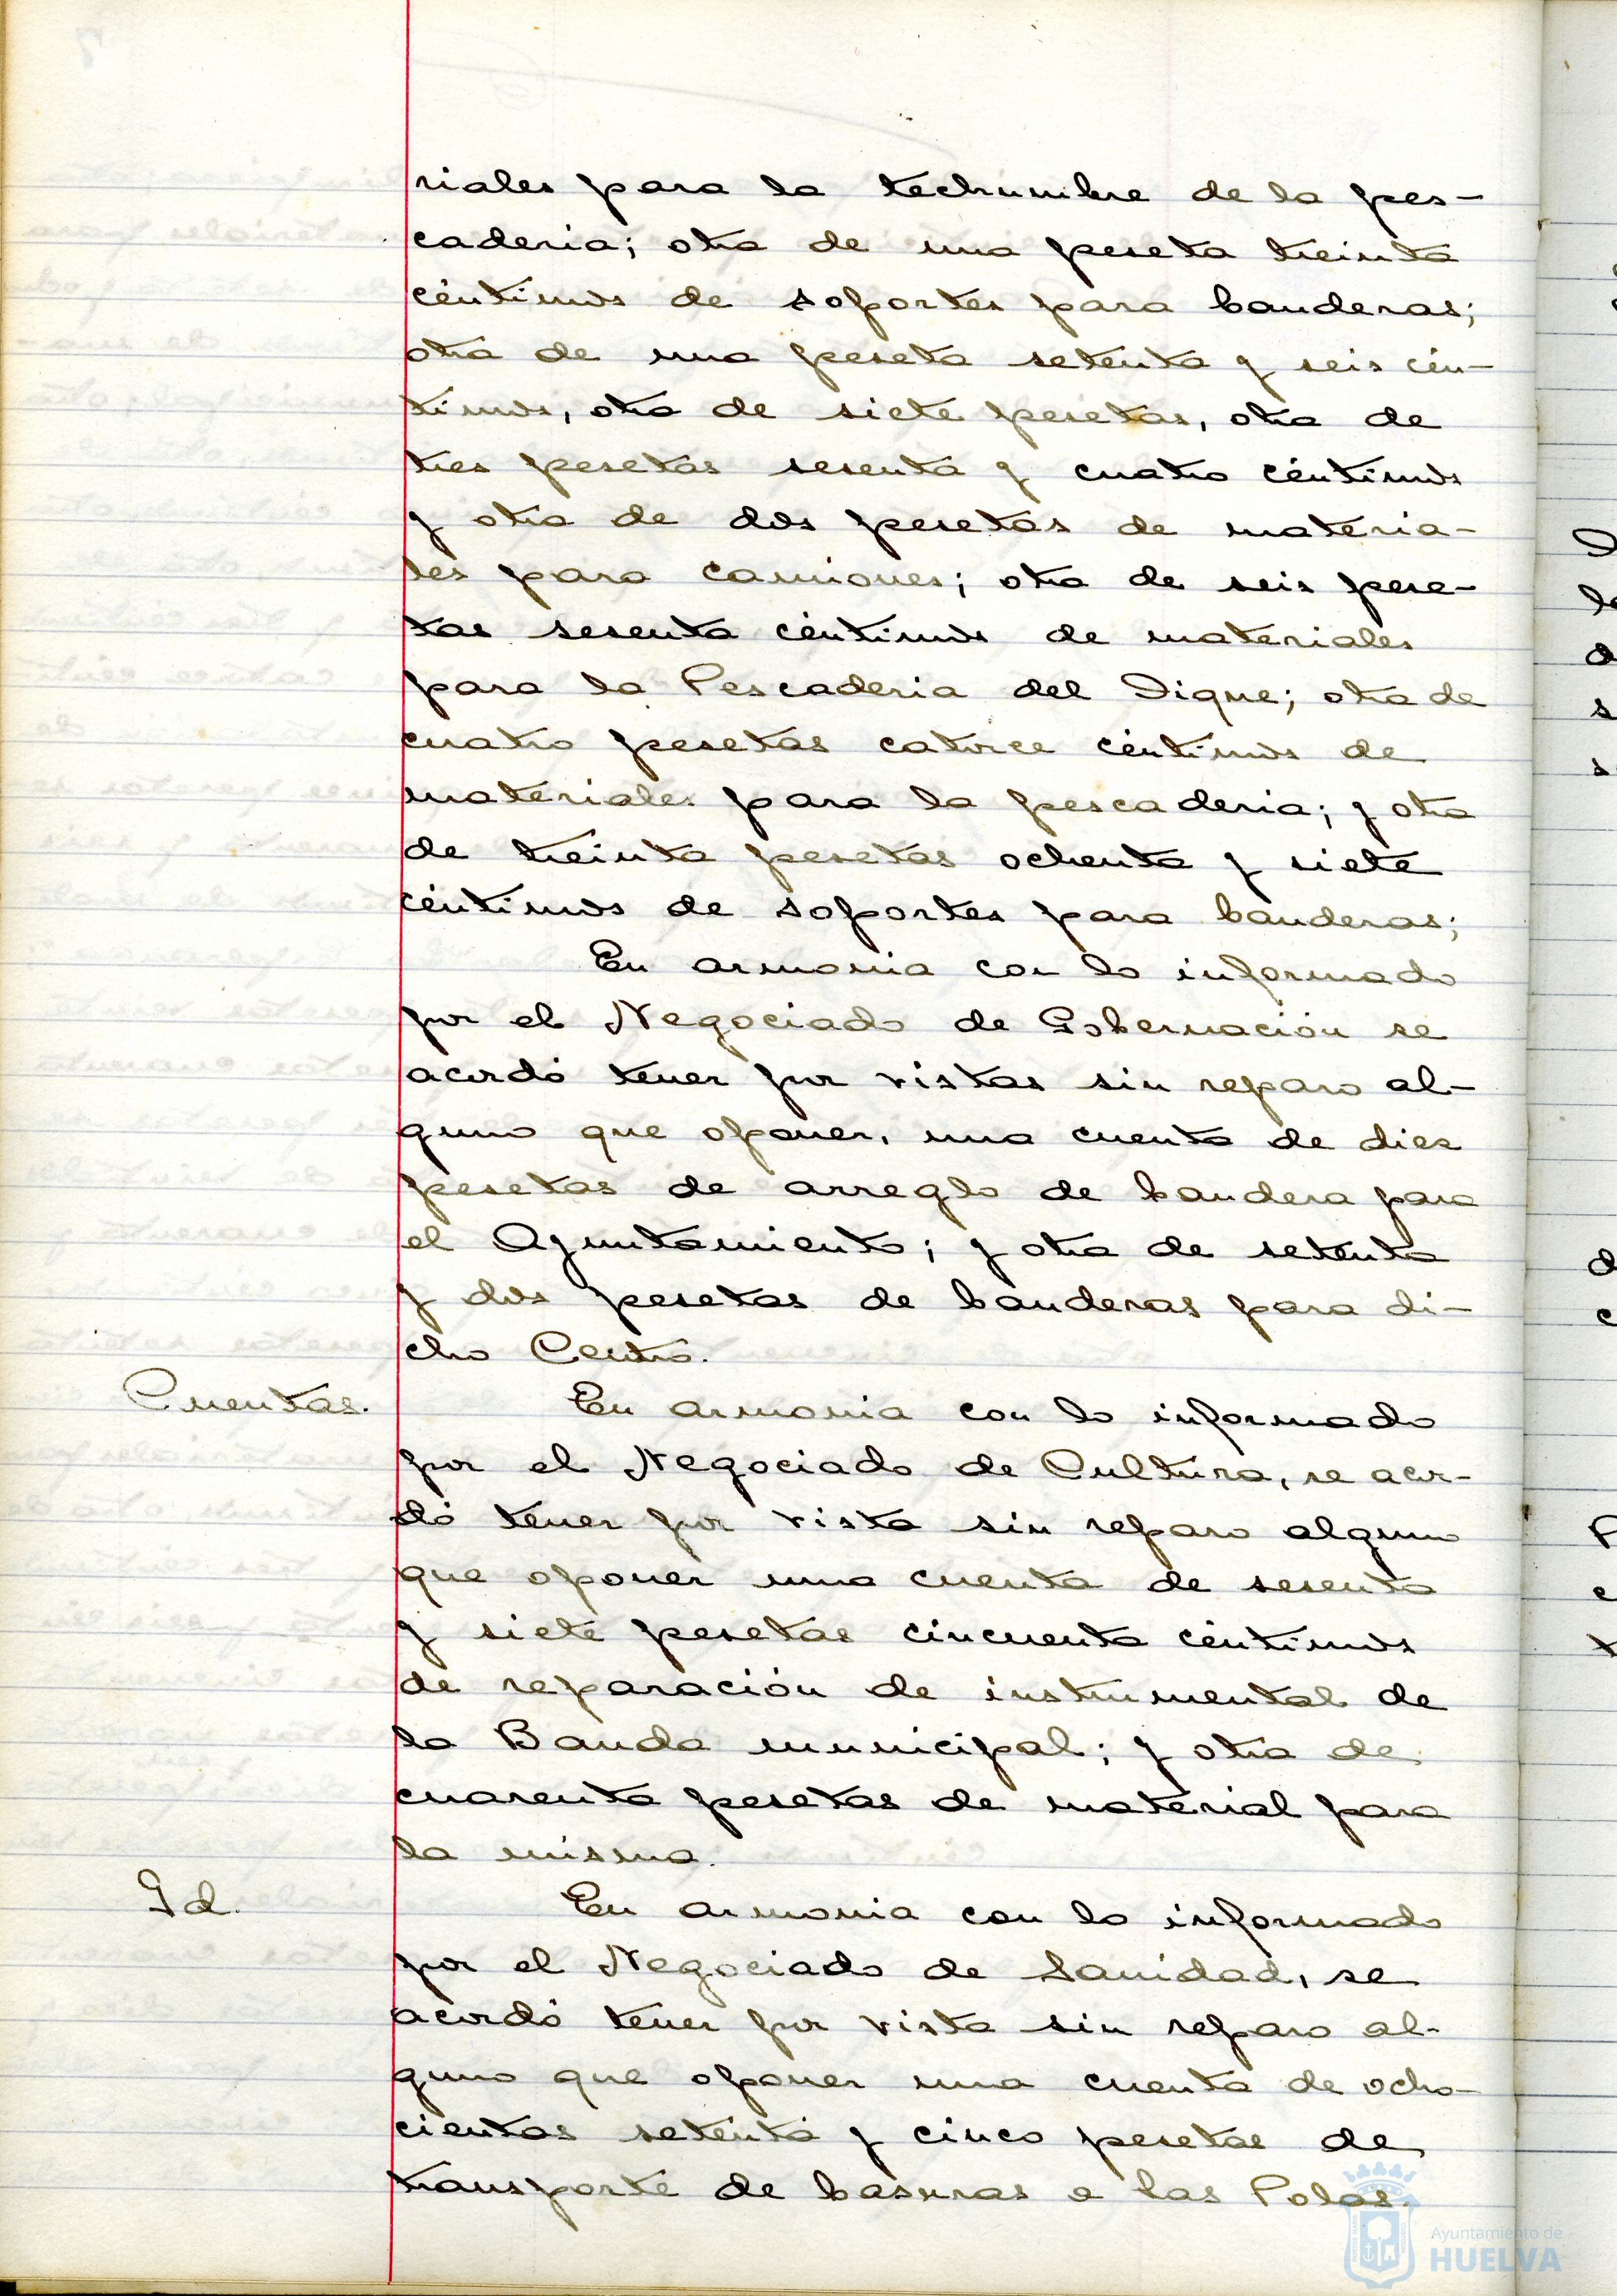 riales para la techumbre de la pes-
caderia; otra de una peseta treinta
céntimos de soportes para banderas;
otra de una peseta setenta y seis cén-
timos, otra de siete pesetas, otra de
tres pesetas sesenta y cuatro céntimos
y otra de dos pesetas de materia-
les para camiones; otra de seis pese-
tas sesenta céntimos de materiales
para la Pescaderia del Dique; otra de
cuatro pesetas catorce céntimos de
materiales para la pescaderia; y otra
de treinta pesetas ochenta y siete
céntimos de soportes para banderas;
En armonia con lo informado
por el Negociado de Gobernación se
acordó tener por vistas sin reparo al-
guno que oponer, una cuenta de diez
pesetas de arreglo de bandera para
el Ayuntamiento; y otra de setenta
y dos pesetas de banderas para di-
cho Centro.
Cuentas.
En armonia con lo informado
por el Negociado de Cultura, se acor-
dó tener por vista sin reparo alguno
que oponer una cuenta de sesenta
y siete pesetas cincuenta céntimos
de reparación de instrumental de
la Banda municipal; y otra de
cuarenta pesetas de material para
la misma.
Id.
En armonia con lo informado
por el Negociado de Sanidad, se
acordó tener por vista sin reparo al-
guno que oponer una cuenta de ocho-
cientas setenta y cinco pesetas de
transporte de basuras a las Polas.
Ayuntamiento de
HUELVA